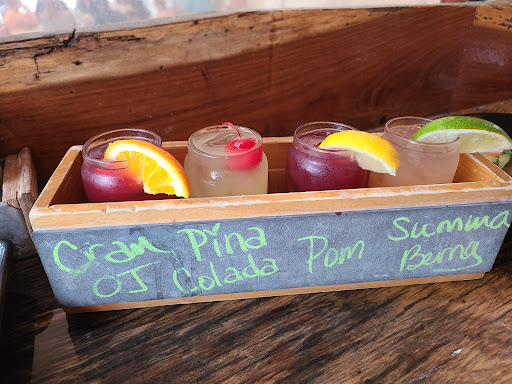 Cran Pina Pom Summa
OJ Colada Berng